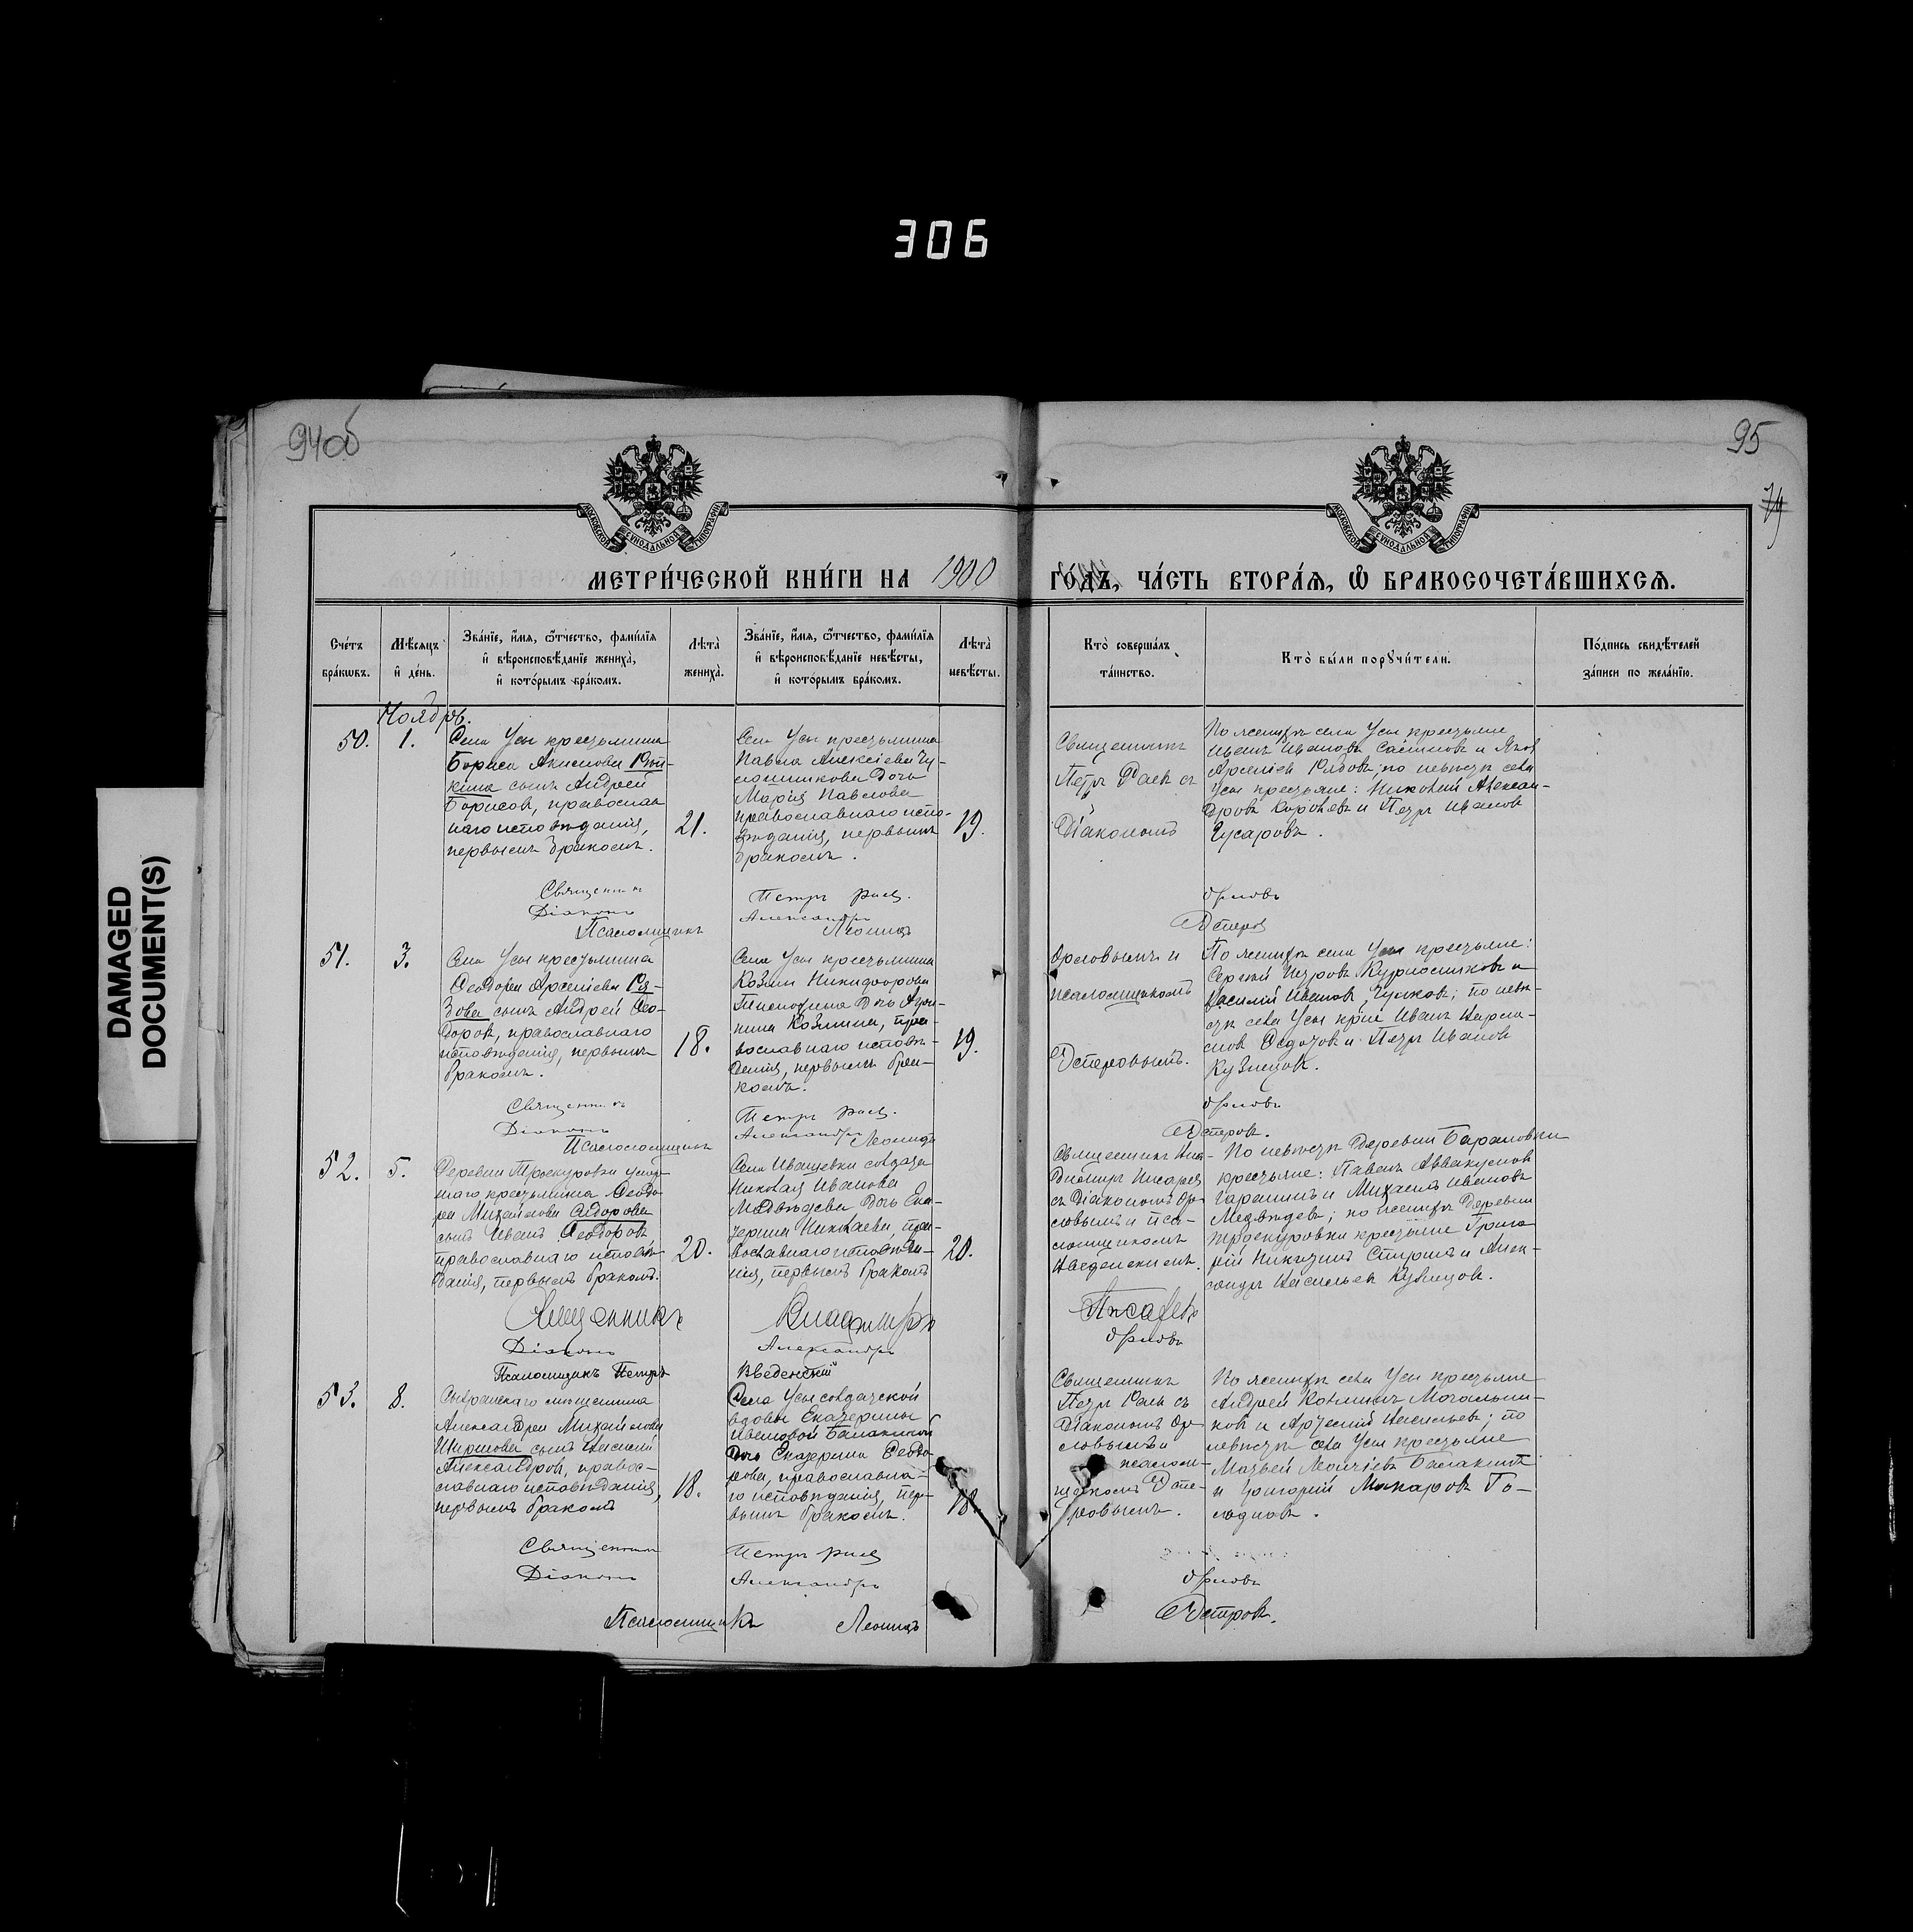 306
94об
95
DAMAGED
DOCUMENT(S)
МОСКОВСКОЙ СѴНОДАЛЬНОЙ ТИПОГРАФІИ
МОСКОВСКОЙ СѴНОДАЛЬНОЙ ТИПОГРАФІИ
МЕТРИ́ЧЕСКОЙ КНИ́ГИ НА 1900 ГО́ДЪ, ЧА́СТЬ ВТОРА́Я, Ѽ БРАКОСОЧЕТА́ВШИХСЯ.
Сче́тъ
бра́кѡвъ.
Мѣ́сяцъ
и҆ де́нь.
Зва́нїе, и҆́мя, ѻ҆́тчество, фами́лїя
и҆ вѣроисповѣ́данїе жениха̀,
и҆ кото́рымъ бра́комъ.
Лѣ́та
жениха̀.
Зва́нїе, и҆́мя, ѻ҆́тчество, фами́лїя
и҆ вѣроисповѣ́данїе невѣ́сты,
и҆ кото́рымъ бра́комъ.
Лѣ́та
невѣ́сты.
Кто̀ соверша́лъ
та́инство.
Кто̀ бы́ли поручи́тели.
По́дпись свидѣ́телей
за́писи по жела́нїю.
Ноябрь.
50.
1.
Села Усы крестьянина
Бориса Акимова
сынъ Андрей
Борисовъ, православ
наго исповѣданія,
первымъ бракомъ.
21.
Села Усы крестьянина
Павла Алексіева
дочь
Марія Павлова
православнаго испо-
вѣданія, первымъ
бракомъ.
19.
Священникъ
Петръ Раевъ съ
Діакономъ
По женихѣ села Усы крестьяне
Иванъ Ивановъ и Яковъ
Арсеніевъ по невѣстѣ села
Усы крестьяне: Николай Алексан-
дровъ и Петръ Ивановъ
Гусаровъ.
Священникъ Петръ Раевъ.
Діаконъ Александръ Орловъ
Псаломщикъ Леонидъ
51.
3.
Села Усы крестьянина
Ѳеодора Арсеніева Ря-
зова сынъ Андрей Ѳео-
доровъ, православнаго
исповѣданія, первымъ
бракомъ.
18.
Села Усы крестьянина
Козмы Никифорова
дочь
Козмина, пра-
вославнаго исповѣ-
данія, первымъ бра-
комъ.
19.
Орловымъ и
псаломщикомъ
По женихѣ села Усы крестьяне:
Сергій Петровъ и
Василій Ивановъ по невѣ-
стѣ села Усы кр̃не Иванъ
и Петръ Ивановъ
Кузнецовъ.
Священникъ Петръ Раевъ.
Діаконъ Александръ Орловъ
Псаломщикъ Леонидъ
52.
5.
Деревни Троекуровки
крестьянина Ѳеодо-
ра Михайлова Сидорова
сынъ Иванъ Ѳеодоровъ
православнаго исповѣ-
данія, первымъ бракомъ.
20.
Села Ивашевки солдата
Николая Иванова
Медвѣдева дочь Ека-
терина Николаева, пра-
вославнаго исповѣда-
нія, первымъ бракомъ
20.
Священникъ Вла-
диміръ Писаревъ
съ Діакономъ Ор-
ловымъ и пса-
ломщикомъ
Введенскимъ.
По невѣстѣ деревни Барановки
крестьяне: Павелъ Аввакумовъ
Гаранинъ и Михаилъ Ивановъ
Медвѣдевъ; по женихѣ деревни
Троекуровки крестьяне Григо
рій Никитинъ и Алек-
сандръ Васильевъ Кузнецовъ.
Священникъ Владиміръ Писаревъ
Діаконъ Александръ Орловъ
Псаломщикъ Петръ Введенскій
53.
8.
Сызранскаго мѣщанина
Александра Михайлова
Ширшова сынъ Василій
Александровъ, правос-
лавнаго исповѣданія,
первымъ бракомъ
18.
Села Усы солдатской
вдовы Екатерины
Ивановой Балакиной
дочь Екатерина Ѳеодо-
рова, православна-
го исповѣданія, пер-
вымъ бракомъ.
18.
Священникъ
Петръ Раевъ съ
Діакономъ Ор-
ловымъ и
псалом-
щикомъ
По женихѣ села Усы крестьяне
Андрей Козминъ
и Васильевъ; по
невѣстѣ села Усы крестьяне
Матвей Балакинъ
и Григорій Макаровъ Го-
лодновъ.
Священникъ Петръ Раевъ
Діаконъ Александръ Орловъ
Псаломщикъ Леонидъ